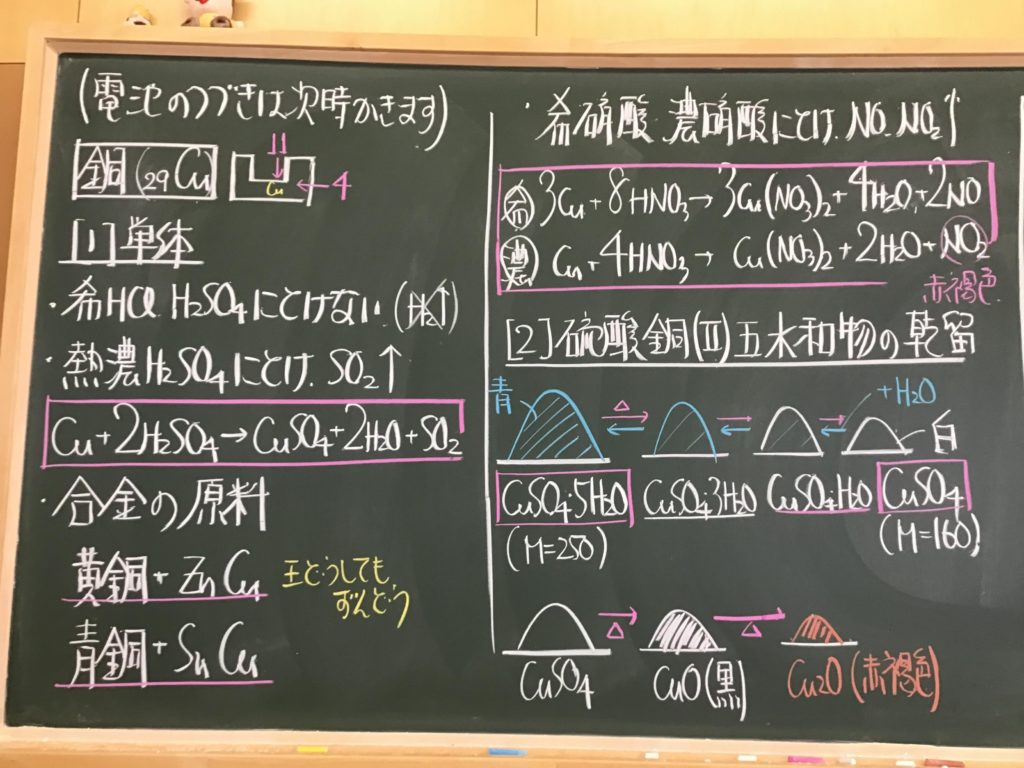 (電池のつづきは次時かきます)
銅(₂₉Cu)
11
Cu
4
[1]単体
・希HCl H₂SO₄にとけない(H₂↑)
・熱濃H₂SO₄にとけ. SO₂↑
Cu+2H₂SO₄→CuSO₄+2H₂O+SO₂
・合金の原料
黄銅+Zn Cu
青銅+Sn Cu
王どうしても、
ずんどう
・希硝酸 濃硝酸にとけ. NO. NO₂↑
希 3Cu+8HNO₃→3Cu(NO₃)₂+4H₂O+2NO
濃 Cu+4HNO₃→Cu(NO₃)₂+2H₂O+NO₂
赤褐色
[2]硫酸銅(II)五水和物の乾留
青 △ +H₂O 白
CuSO₄・5H₂O CuSO₄・3H₂O CuSO₄・H₂O CuSO₄
(M=250) (M=160)
△ △
CuSO₄ CuO(黒) Cu₂O(赤褐色)